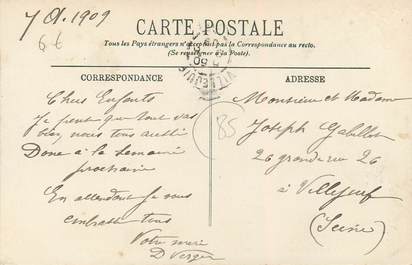 7 A. 1909
6€
CARTE POSTALE
Tous les Pays étrangers n'acceptent pas la Correspondance au recto.
(Se renseigner à la Poste).
CORRESPONDANCE
Chers Enfants
Je pense que tout vas
bien, nous tous aussi
Donc à la semaine
prochaine
En attendant je vous
embrasse tous
Votre mère
D Verger
ADRESSE
Monsieur et Madame
85
Joseph
26 grande rue 26
à Villejuif
(Seine)
VILLEJUIF